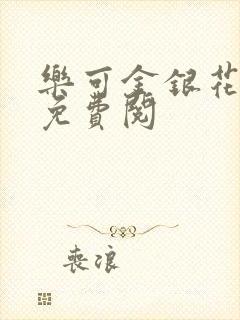 樂可金銀花
免費閱
喪浪